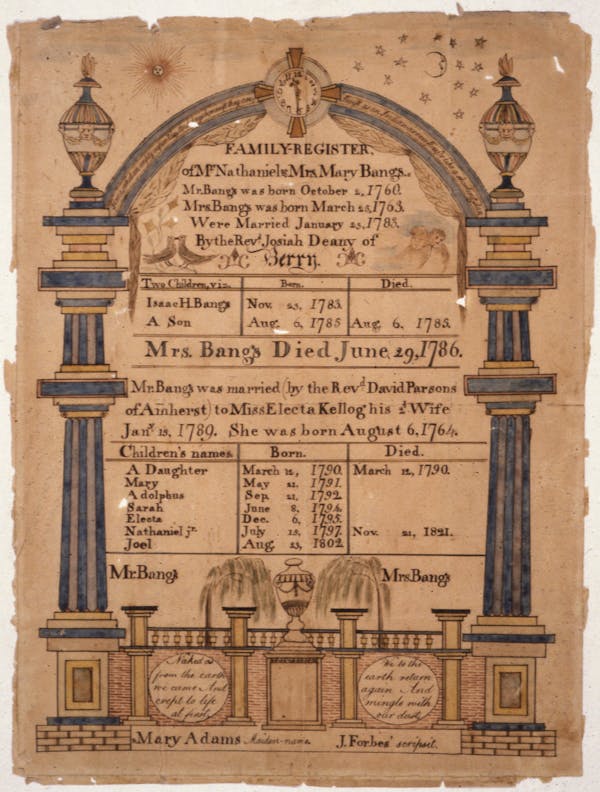 FAMILY-REGISTER,
of Mr Nathaniel & Mrs Mary Bangs.
Mr. Bangs was born October 2, 1760.
Mrs Bangs was born March 25, 1763.
Were Married January 23, 1783.
By the Revd Josiah Deany of
Berry.
Two Children, viz. Born. Died.
Isaac H. Bangs Nov. 23, 1783.
A Son Aug. 6, 1785 Aug. 6, 1785.
Mrs. Bangs Died June 29, 1786.
Mr. Bangs was married (by the Revd David Parsons
of Amherst) to Miss Electa Kellog his 2d Wife
Jany 13, 1789. She was born August 6, 1764.
Children's names Born. Died.
A Daughter March 12, 1790. March 12, 1790.
Mary May 21. 1791.
Adolphus Sep. 21, 1792
Sarah June 8, 1794.
Electa Dec. 6, 1795.
Nathaniel jr. July 15, 1797. Nov. 21, 1821.
Joel Aug. 23, 1802
Mr. Bangs Mrs. Bangs
Naked as
from the earth
we came And
crept to life
at first
We to the
earth return
again And
mingle with
our dust
Mary Adams Maiden-name J. Forbes' scripsit.